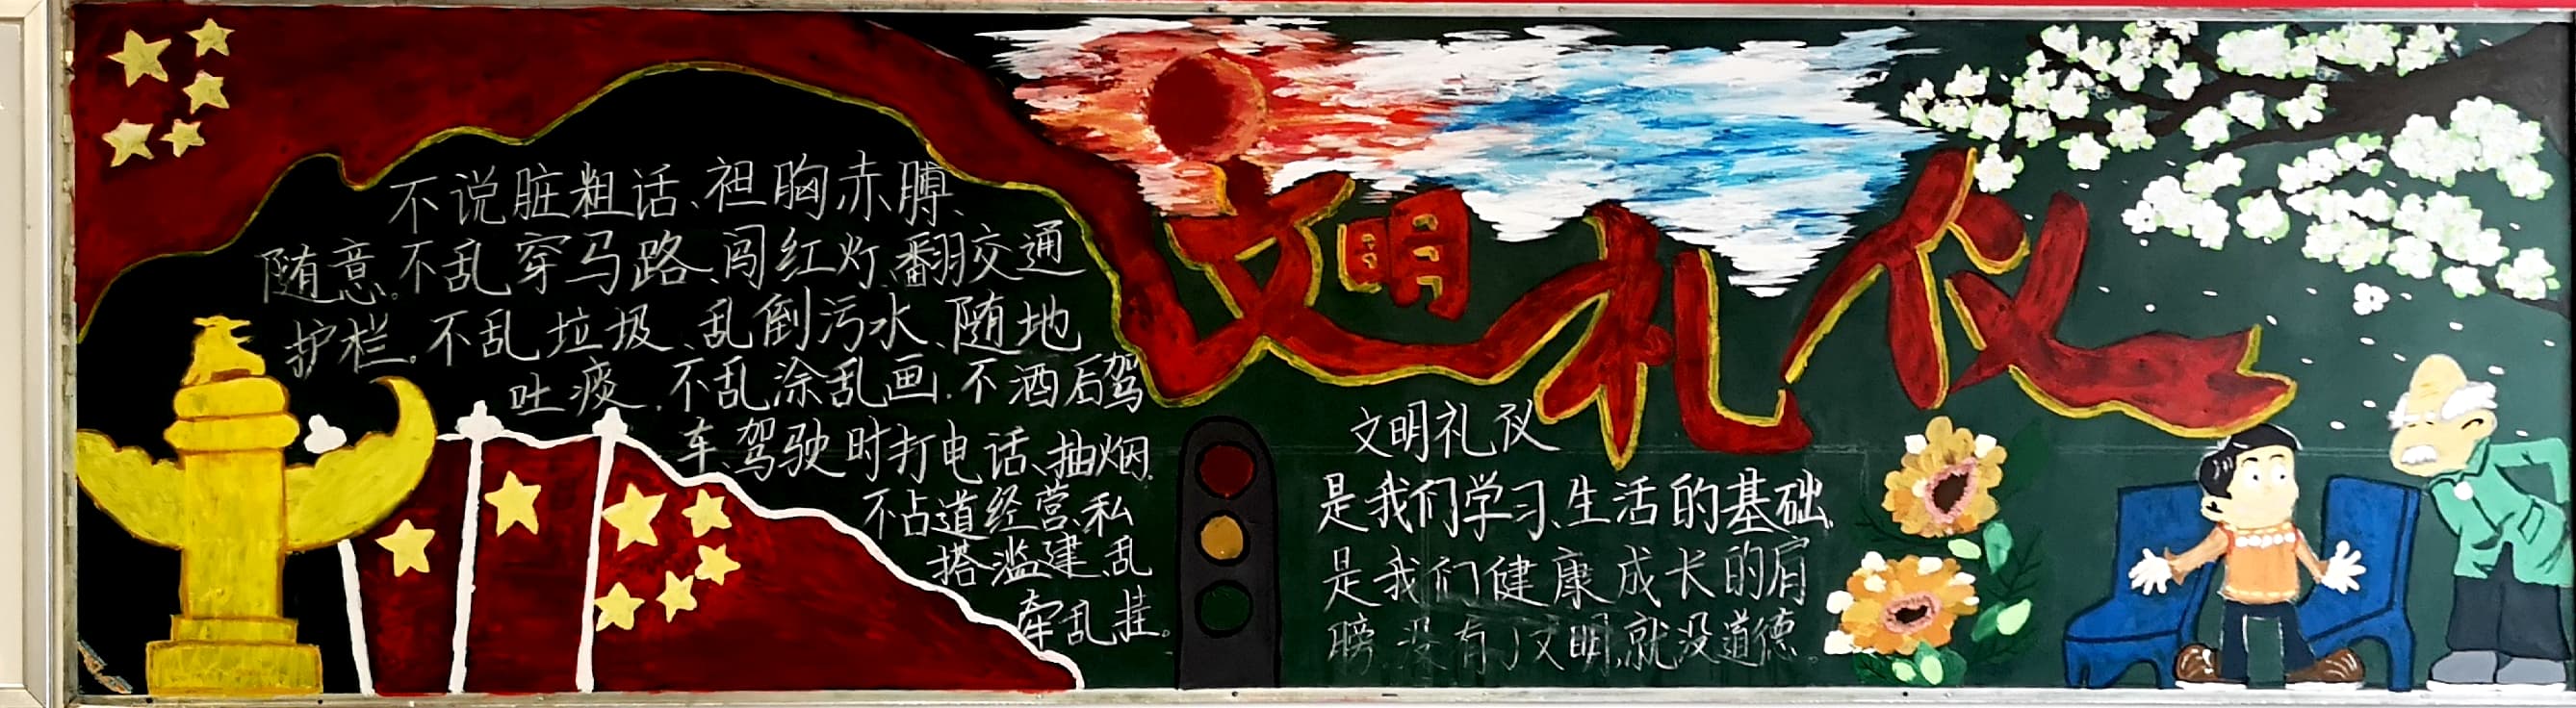 文明礼仪
不说脏粗话、袒胸赤膊、
随意。不乱穿马路、闯红灯、翻交通
护栏。不乱垃圾、乱倒污水、随地
吐痰.不乱涂乱画.不酒后驾
车、驾驶时打电话、抽烟.
不占道经营、私
搭滥建、乱
牵乱挂。
文明礼仪
是我们学习、生活的基础.
是我们健康成长的肩
膀.没有了文明,就没道德。